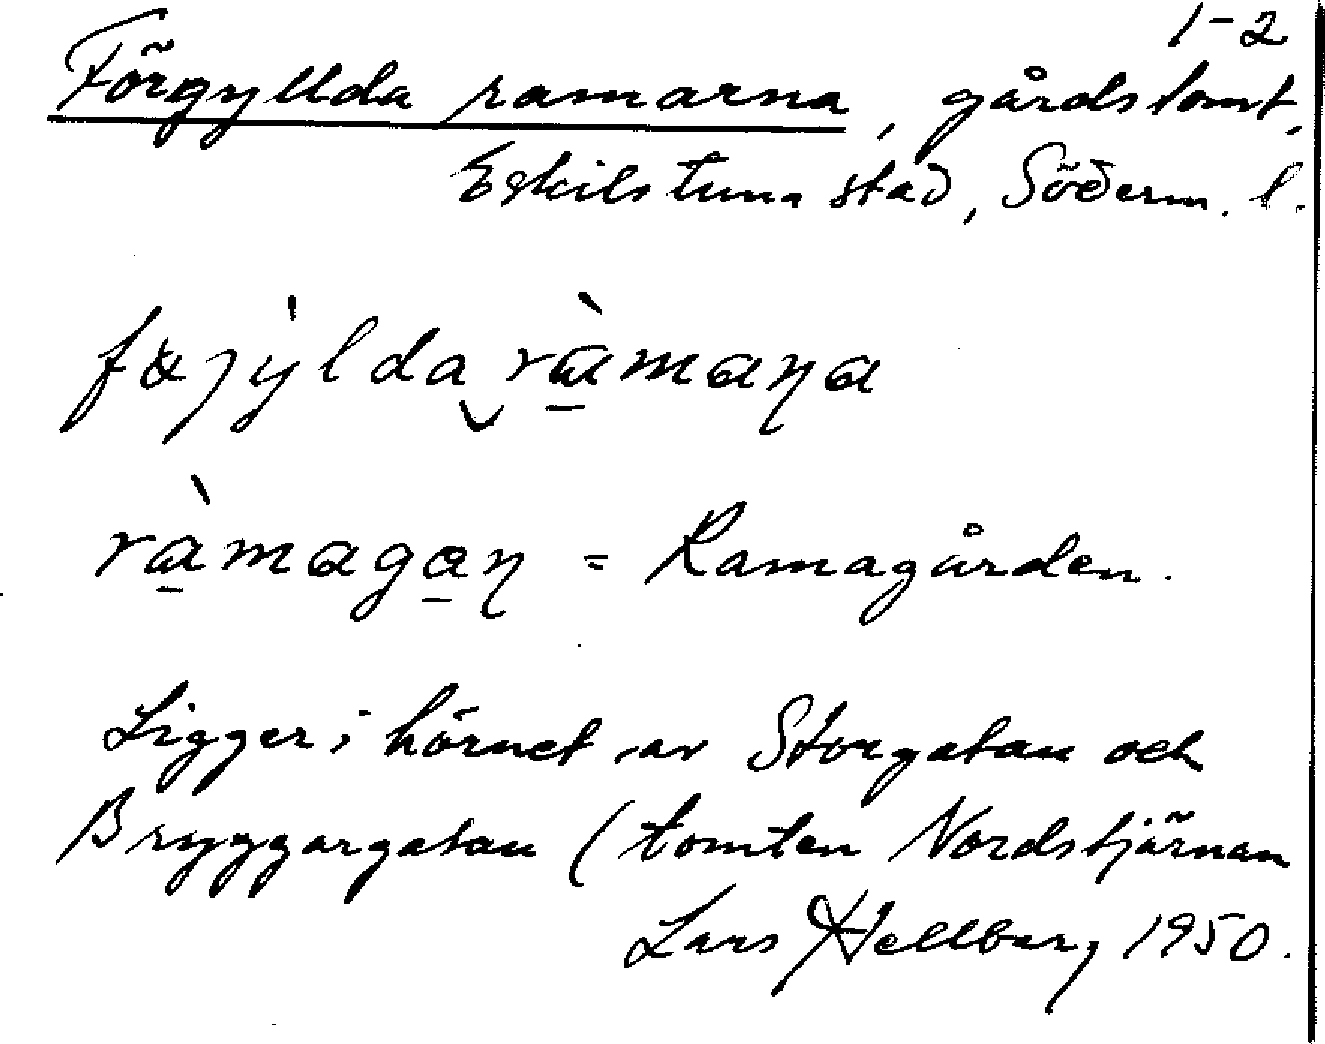 1-2
Förgyllda ramarna, gårdstomt,
Eskilstuna stad, Söderm. l.
fɷjỳlda‿ràmaɳa
ràmagaɳ = Ramagården.
Ligger i hörnet av Storgatan och
Bryggargatan (tomten Nordstjärnan
Lars Hellberg 1950.